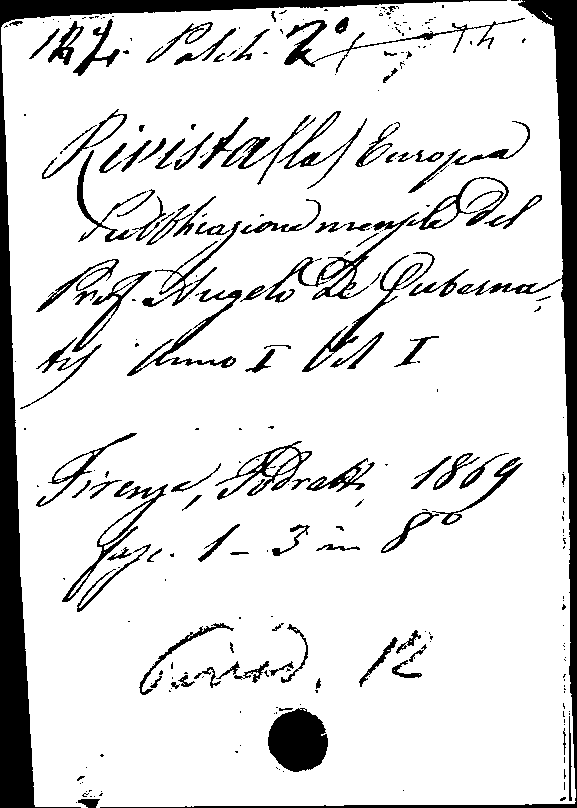 Palch. 2º
Rivista (la) Europea
Pubblicazione mensile del
Prof. Angelo De Guberna,
tis Anno I Vol I
Firenze, Podratti, 1869
fasc. 1 - 3 in 8º
12